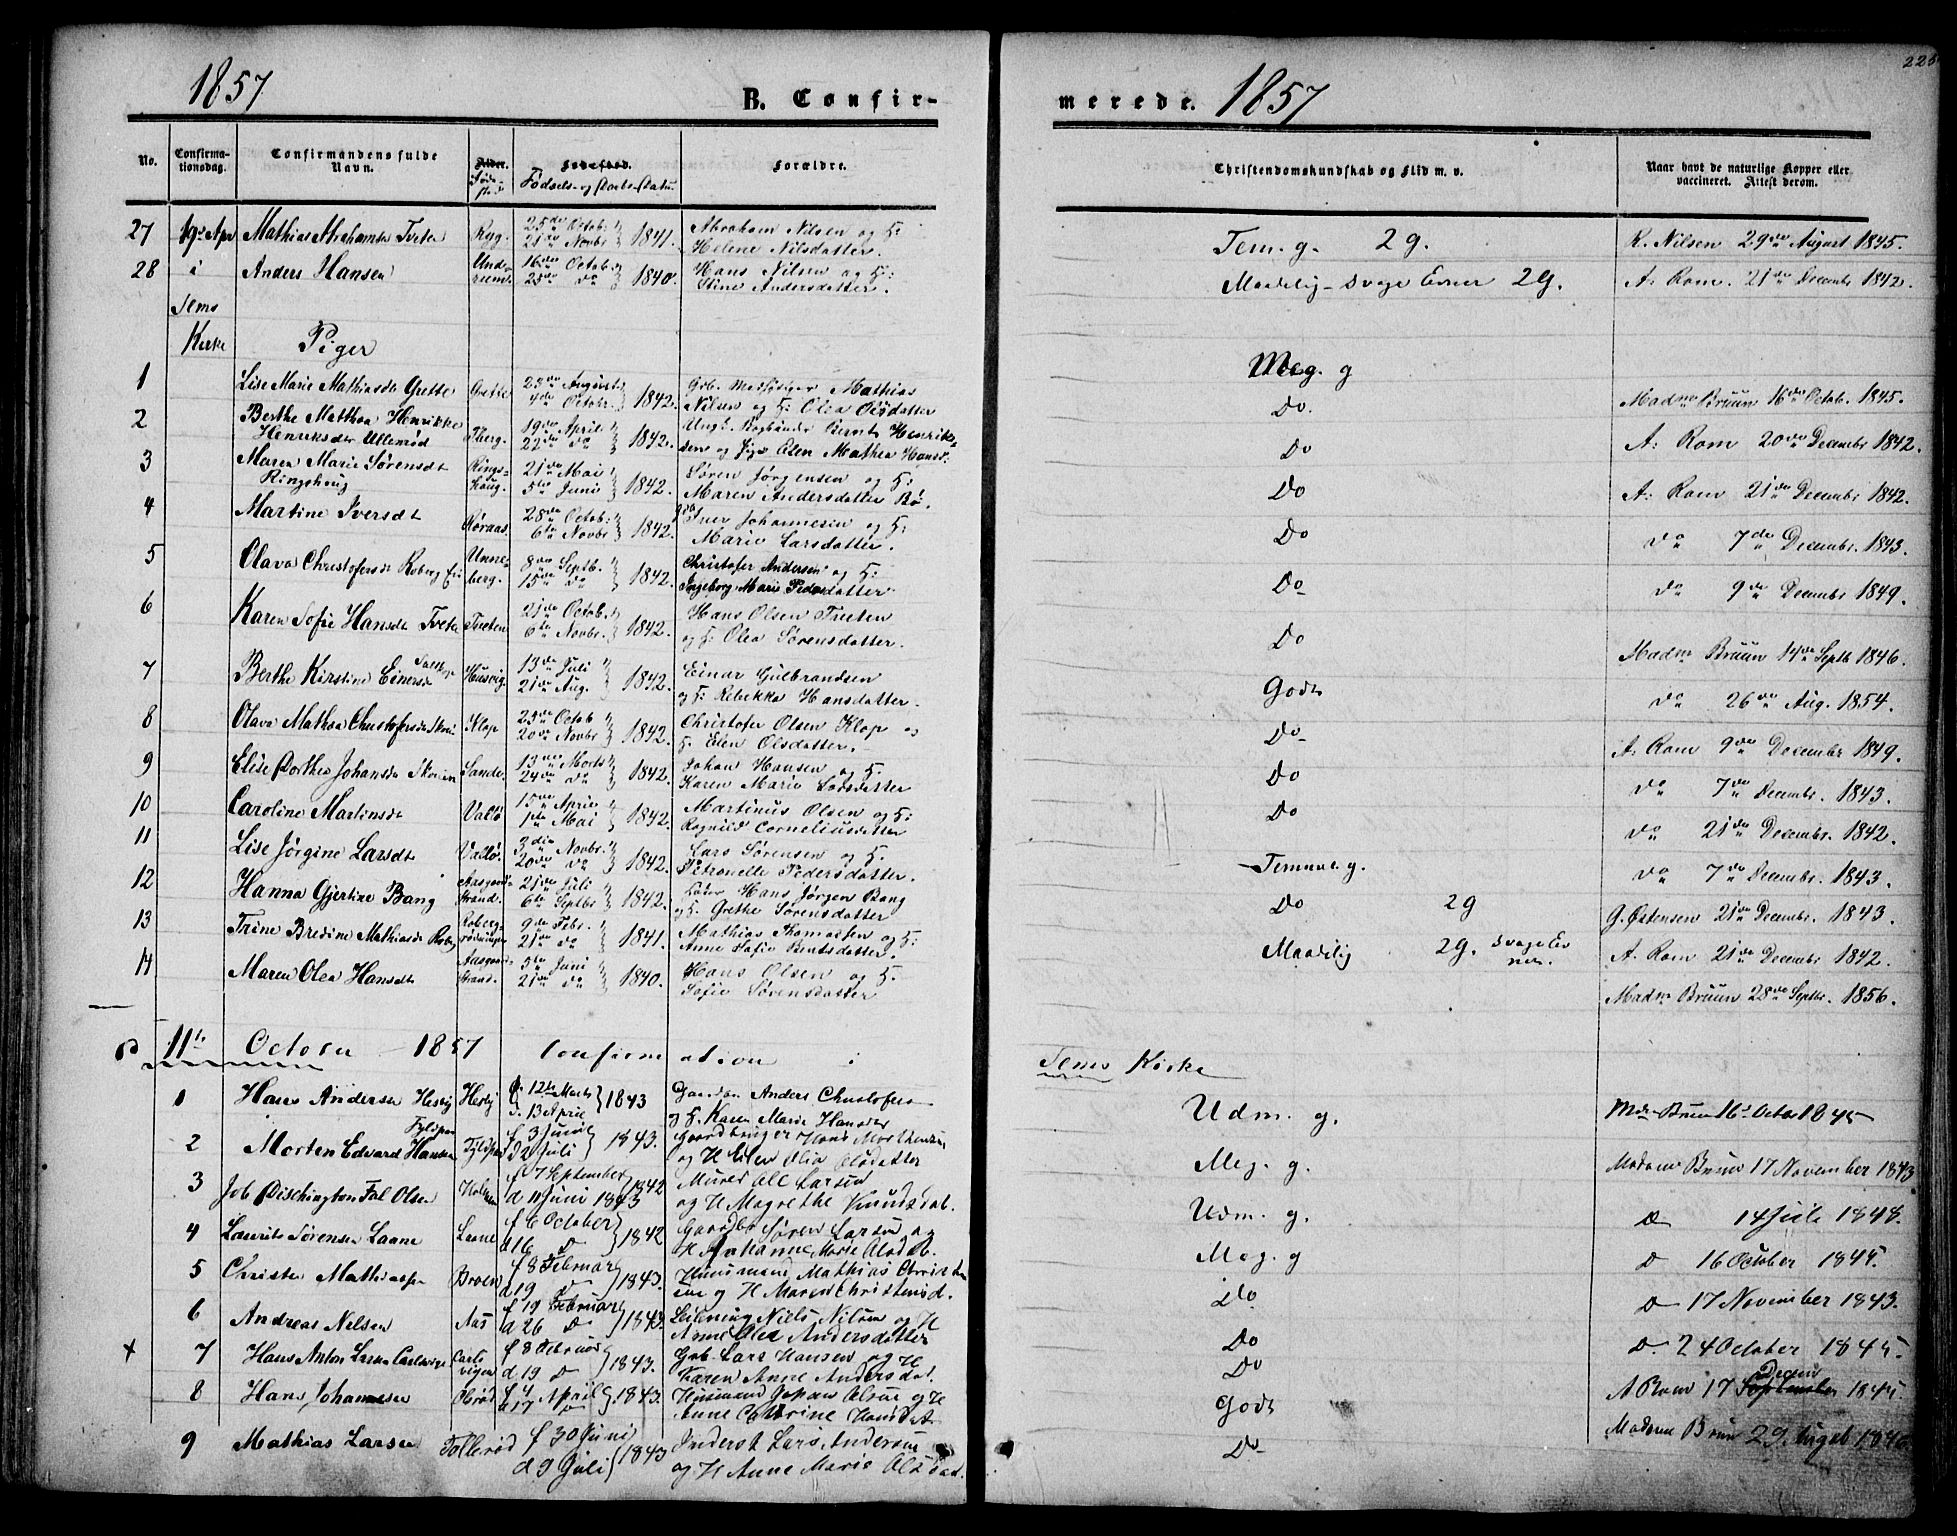 1857
B. Confir-
No.
Confirma-
tionsdag.
Confirmandens fulde
Navn.
Alder.
Føde-
sted
Fødested.
Fødsels- og Daabs-Datum
Forældre.
27 19de Apr Mathias Abrahamsn Tveten Ryg. 25de Octob. 21de Novbr 1841. Abraham Nilsen og H:
Helene Nilsdatter.
28 i Anders Hansen Und- 16de Octob. 25de do 1840. Hans Nilsen og H:
Stine Andersdatter.
Sems
Kirke Piger
1 Lise Marie Mathiasdr Grette Grette 4de Octobr. 1842. Grb. Mathias
Nilsen og H: Olea Olsdatter
2 Berthe Mathea Henrikke 19de April 22de do 1842. Ungk. Bernt Henrik-
Henriksdr Ullerød Berg. sen og Pige Olen Mathea Hansd:
3 Maren Marie Sørensdt Rings- 21de Mai 1842. Søren Jørgensen og H:
Ringshoug houg. 5te Juni Maren Andersdatter Bø.
4 Martine Iversdt Røraas 28de Octob. 6te Novbr 1842. Iver Johannesen og H:
Marie Larsdatter.
5 Olava Christofersdr Roberg Unne- 8de Septb. 1842. Christofer Andersen og H:
berg. 15de do Ingeborg Marie Pedersdatter
6 Karen Sofie Hansdt Tveten Tveten 21de Octob. 6te Novbr. 1842. Hans Olsen Tveten
og H: Olea Sørensdatter.
7 Berthe Kirstine Einersdr Husvig. 13de Juli 21de Aug. 1842. Einar Gulbrandsen
og H: Rebekka Hansdatter.
8 Olava Mathea Christofersdr Klop 25de Octob 20de Novbr 1842. Christofer Olsen Klop og
H: Elen Olsdatter.
9 Elise Dorthea Johansdr Skorien Sande. 13de Marts 24de do 1842. Johan Hansen og H:
Karen Marie Larsdatter
10 Caroline Martinsdr Vallø 15de April 1ste Mai 1842. Martinus Olsen og H:
Ragnild Corneliusdatter
11 Lise Jørgine Larsdt Vallø. 3die Novbr. 20de do 1842. Lars Sørensen og H:
Petronelle Pedersdatter.
12 Hanna Gjertine Bang Aasgaard- 21de Juli 1842. Hans Jørgen Bang
strand. 6te Septbr og H: Grethe Sørensdatter
13 Trine Bredine Mathiasdr Roberg Roberg- 9de Febr. 21de do 1841. Mathias Thomassen og H:
Anne Sofie Berntsdatter.
14 Maren Olea Hansdt Aasgaard- 5te Juni 1840. Hans Olsen og H:
strand. 21de do Sofie Sørensdatter
11te October 1857 Confirmation i
1 Hans Andersen Hesby Hesby f. 12te Marts d. 13 April 1843 Anders Christofersen
og H. Karen Marie Hansdr
2 Morten Edvard Hansen f 3 Juni d 2 Juli 1843. Gaardbruger Hans Mortensen
og H Elen Olia Olsdatter
3 Job Fal Olsen f 7 September 1842 Murer Ole Larsen
d 11 Juni 1843 og H Magrethe Knudsdat.
4 Laurits Sørensen Laane Laane f 6 October d 16 D 1842 Gaardbr Søren Larsen og
H Johanne Marie Olsdt.
5 Christen Mathiassen Broen f 8 Februar d 19 D 1843. Husmand Mathias Christen
sen og H Maren Christensd.
6 Andreas Nilsen Aas f 19 Februar d 26 D 1843 Niels Nilsen og H
Anne Olea Andersdatter
7 Hans Anton Larsen Carlsvigen Carls f 8 Februar 1843. Grb. Lars Hansen og H
vigen d 19 D Karen Anne Andersdat.
8 Hans Johannesen Obrød f 4 April d 17 1843. Husmand Johan Olsen og H
Anne Cathrine Hansdat
9 Mathias Larsen Tollerød f 30 Juni d 9 Juli 1843 Inderst Lars Andersen
og H Anne Marie Olsdat.
merede. 1857
225
Christendomskundskab og Flid m. v.
Naar havt de naturlige Kopper eller
vaccineret. Attest derom.
Tem. g. 2g. R. Nilsen 29de August 1845.
Maadelig - svage Evner 2g. A: Rom. 21de December 1842.
Meg. g
Madme Bruun 16de Octob. 1845.
Do.
A: Rom 20de Decembr 1842.
Do
A: Rom 21de Decembr 1842.
Do
do 7de Decembr. 1843.
Do
do 9de Decembr 1849.
Do
Madme Bruun 14de Septb 1846.
Do
do 26de Aug. 1854.
Godt
A. Rom 9de Decembr 1849.
Do
do 7de Decembr. 1843.
Do
do 21de Decembr. 1842.
Do
do 7de Decembr. 1843.
Temme. g.
G. Østensen 21de Decembr. 1843.
Do 2g
A. Rom 21de Decembr 1842.
Maadelig 2g. svage Ev
ner.
Madme Bruun 28de Septbr. 1856.
Sems Kirke
Udm. g. Mdm Bruun 16de Octbr 1845
Meg. g. Madame Bruun 17 November 1843
Udm. g. D 14 Juli 1848.
Meg. g D 16 October 1845.
Do. D 17 November 1843.
Do D. 24 October 1845.
Do A Rom 17 September Decem 1845.
Godt Madame Bruun 29 August 1846
Do